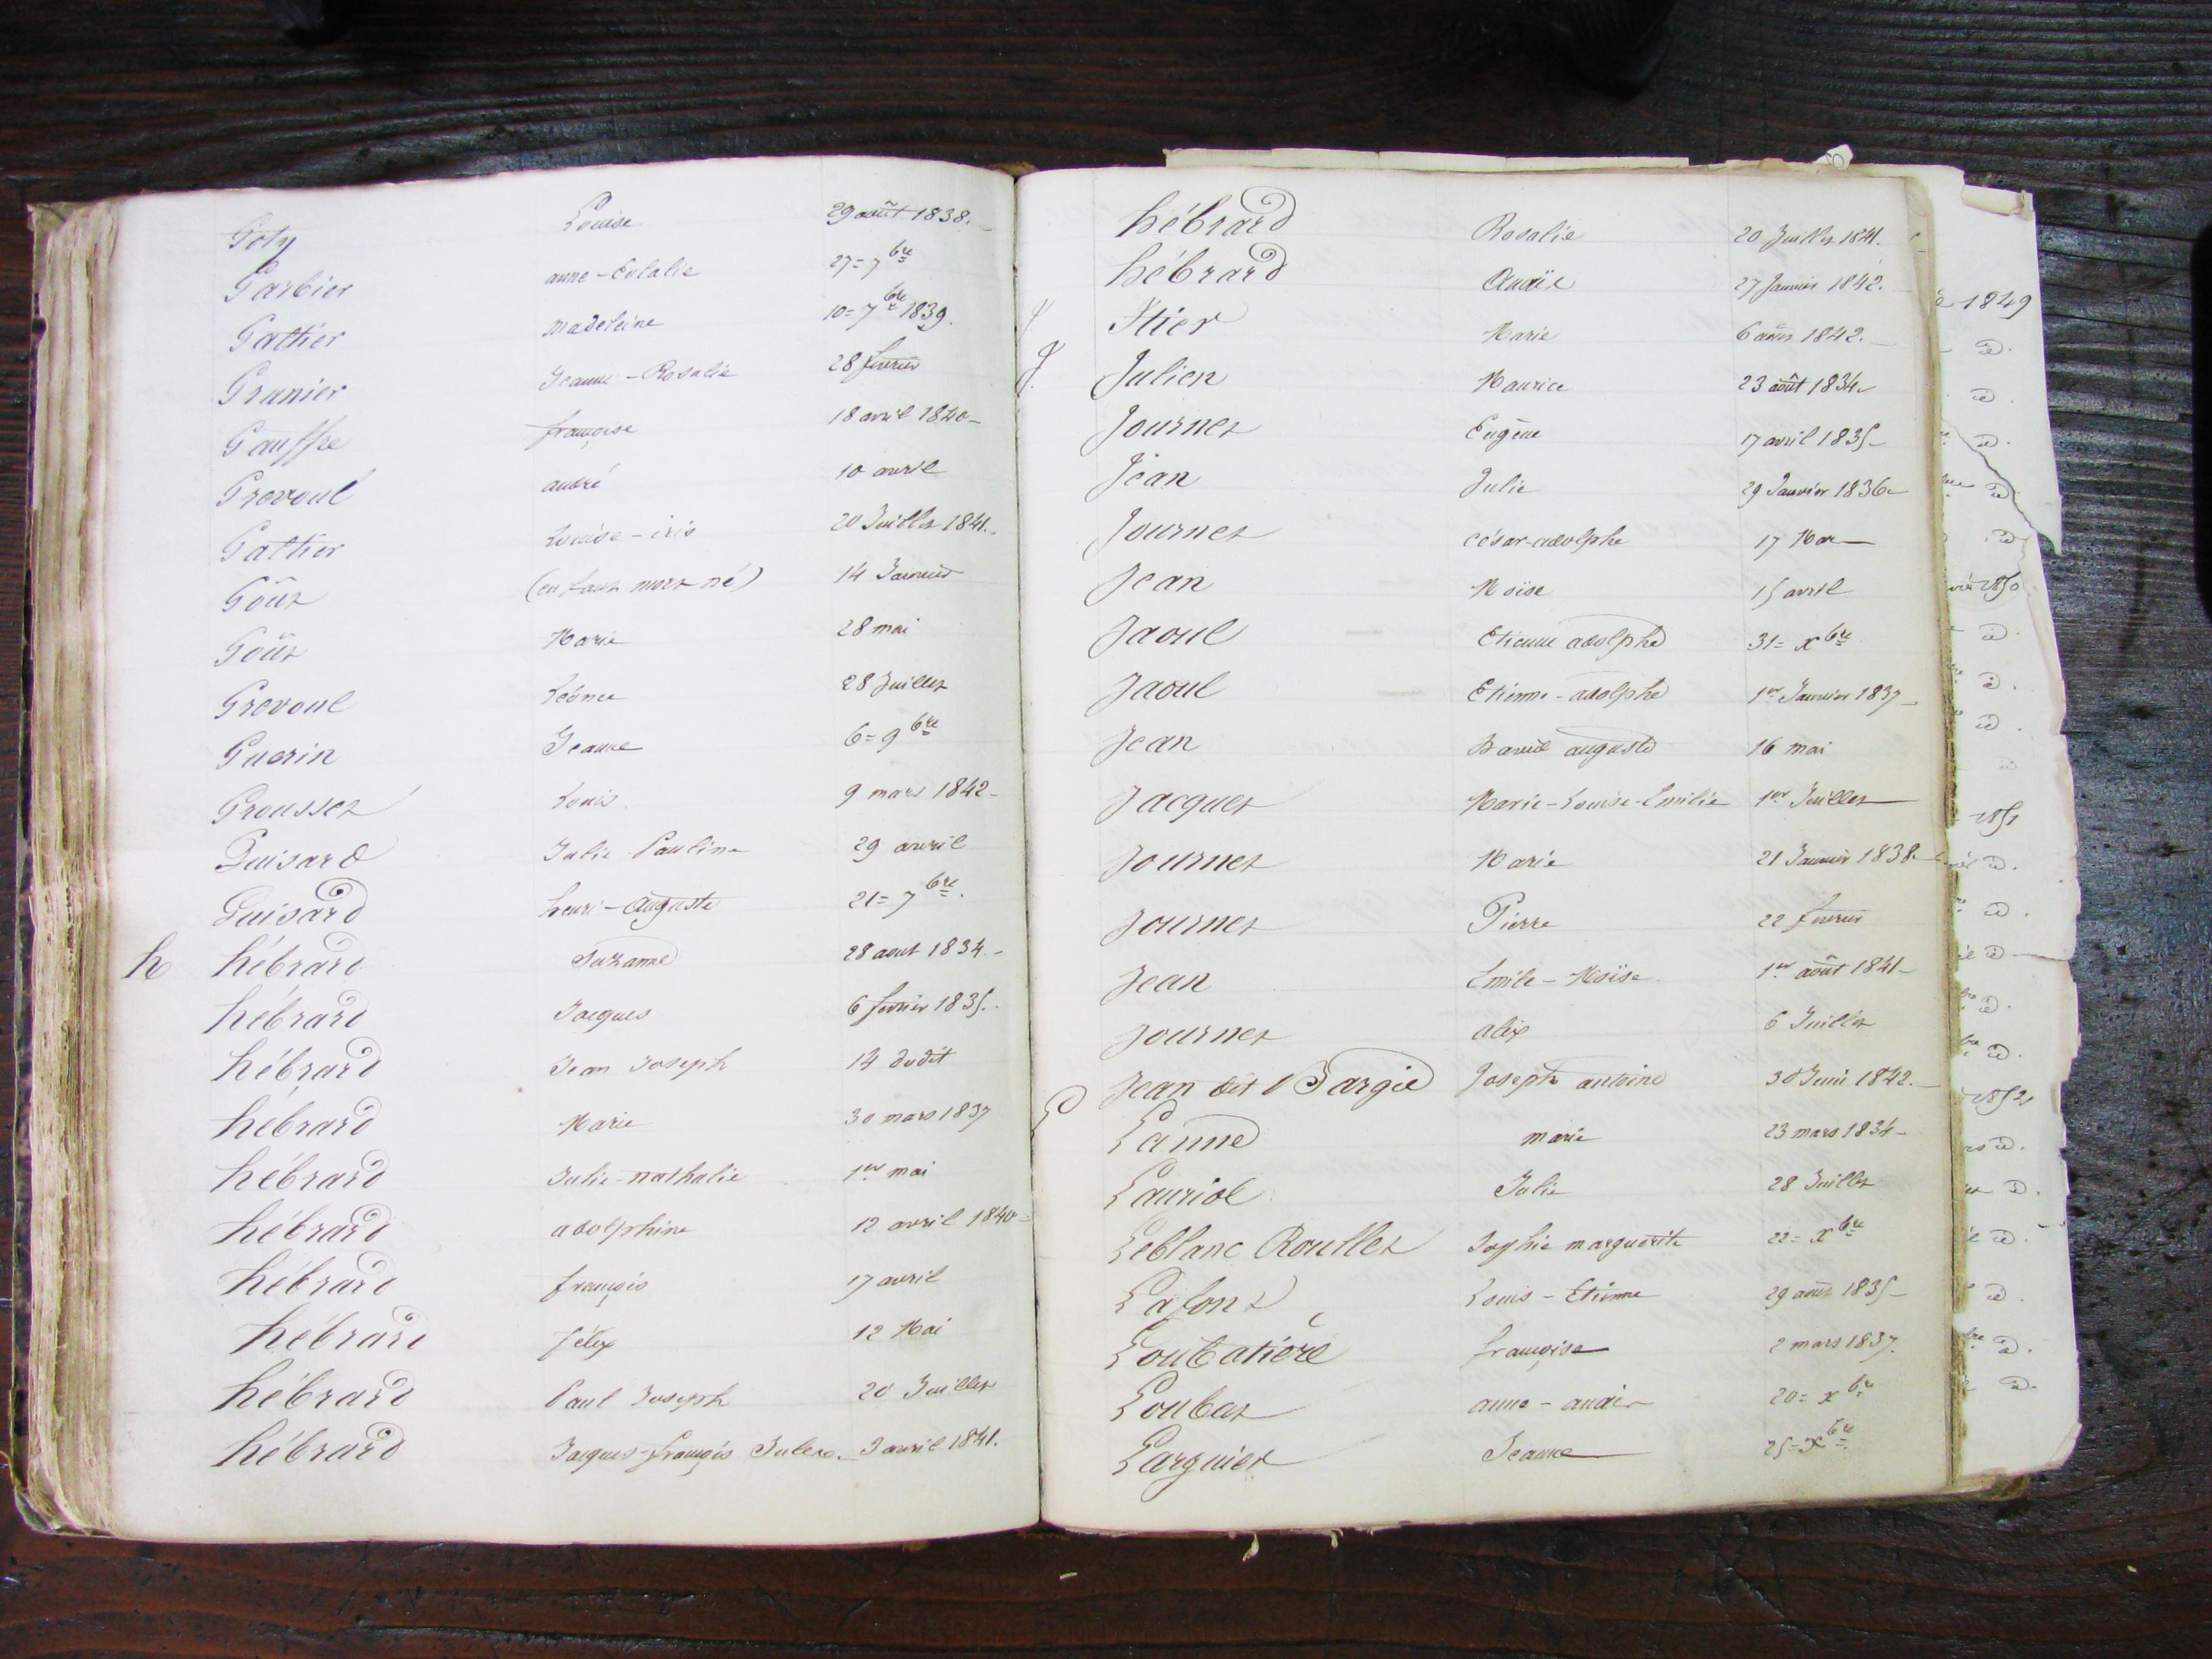 Goty Louise 29 août 1838.
Garbier anne-Eulalie 27= 7bre
Gattier madeleine 10= 7bre 1839.
Granier Jeanne-Rosalie 28 fevrier
Gauffre françoise 18 avril 1840
Grevoul andré 10 avril
Gattier Louise-iris 20 Juillet 1841.
Goût (enfant mort né) 14 Janvier
Goût Marie 28 mai
Grevoul Léonce 28 Juillet
Guerin Jeanne 6= 9bre
Grousset Louis 9 mars 1842
Guisard Julie Pauline 29 avril
Guisard henri-auguste 21= 7bre.
h hébrard Suzanne 28 aout 1834.
hébrard Jacques 6 fevrier 1835.
hébrard Jean Joseph 14 dudit
hébrard Marie 30 mars 1837
hébrard Julie-nathalie 1er mai
hébrard adolphine 12 avril 1840
hébrard françois 17 avril
hébrard félix 12 Mai
hébrard Paul Joseph 20 Juillet
hébrard Jacques-françois Jules. 3 avril 1841.
hébrard Rosalie 20 Juillet 1841.
hébrard Anaïs 27 Janvier 1842.
Itier Marie 6 août 1842.
J. Julien Maurice 23 août 1834
Journet Eugène 17 avril 1835
Jean Julie 29 Janvier 1836
Journet César-adolphe 17 Mai
Jean Moïse 15 avril
Jaoul Etienne adolphe 31= xbre
Jaoul Etienne-adolphe 1er Janvier 1837
Jean David auguste 16 mai
Jacques Marie-Louise-Emilie 1er Juillet
Journet Marie 21 Janvier 1838
Journet Pierre 22 fevrier
Jean Emile-Moïse 1er août 1841
Journet alix 6 Juillet
Jean dit Bargié Joseph antoine 30 Juin 1842.
L Lanne marie 23 mars 1834
Lauriol Julie 28 Juillet
Leblanc Roullet Sophie marguerite 22= xbre
Lafont Louis-Etienne 29 août 1835
Loubatière françoise 2 mars 1837.
Loubat anne-anaïs 20= xbre
Larguier Jeanne 25= xbre
1849
id.
id.
id.
id.
id.
1850
id.
id.
id.
id.
1851
id.
id.
id.
id.
id.
1852
id.
id.
id.
id.
id.
id.